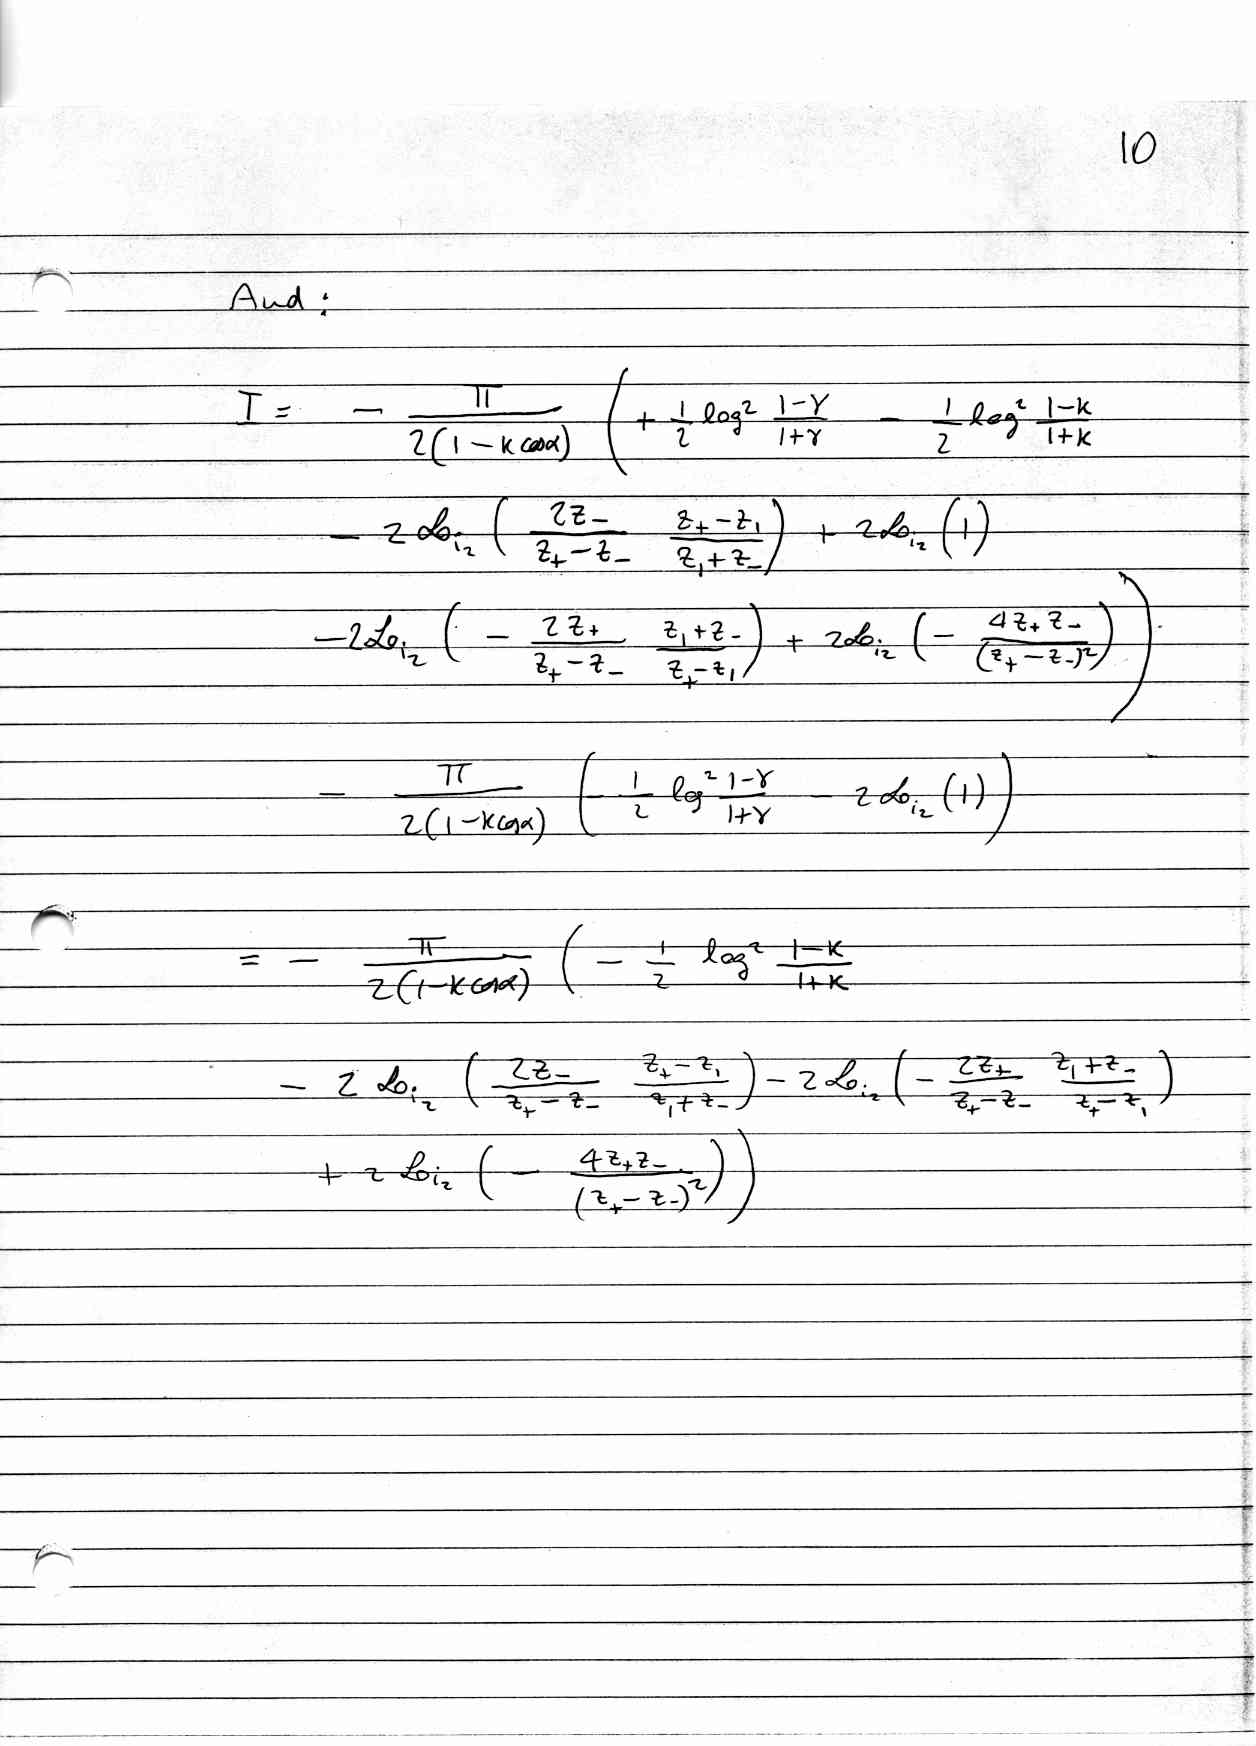 10
And :
I = - π/(2(1 - κ cosα)) ( + 1/2 log² (1-γ)/(1+γ) - 1/2 log² (1-κ)/(1+κ)
- 2 Li₂ ( 2z₋/(z₊ - z₋) (z₊ - z₁)/(z₁ + z₋) ) + 2 Li₂ (1)
- 2 Li₂ ( - 2z₊/(z₊ - z₋) (z₁ + z₋)/(z₊ - z₁) ) + 2 Li₂ ( - 4z₊z₋/(z₊ - z₋)² ) )
- π/(2(1 - κ cosα)) ( - 1/2 log² (1-γ)/(1+γ) - 2 Li₂ (1) )
= - π/(2(1 - κ cosα)) ( - 1/2 log² (1-κ)/(1+κ)
- 2 Li₂ ( 2z₋/(z₊ - z₋) (z₊ - z₁)/(z₁ + z₋) ) - 2 Li₂ ( - 2z₊/(z₊ - z₋) (z₁ + z₋)/(z₊ - z₁) )
+ 2 Li₂ ( - 4z₊z₋/(z₊ - z₋)² ) )